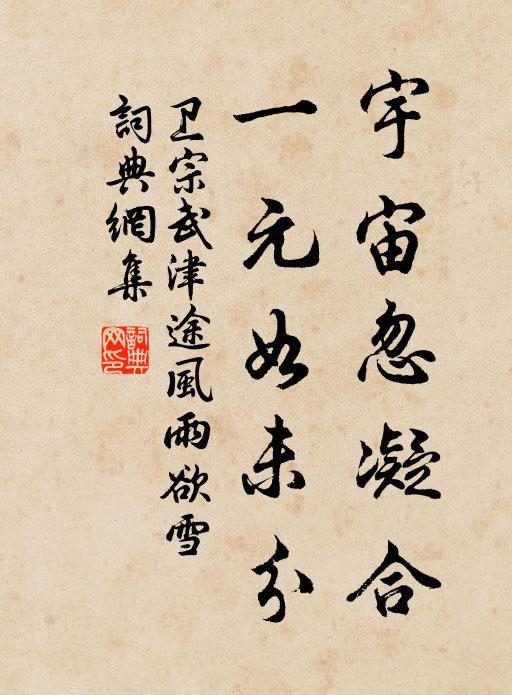 宇宙忽凝合
一元如未分
卫宗武津途風雨欲雪
詞典網集
詞典网印